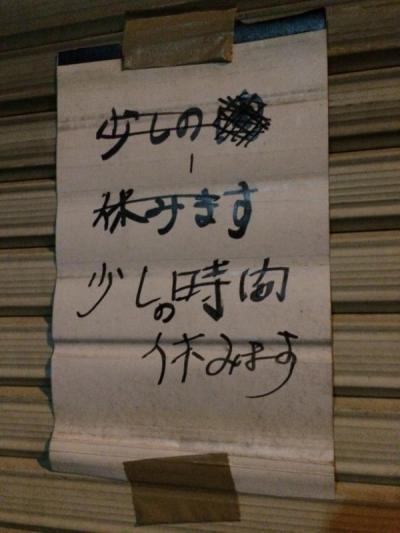 少しの
休みます
少しの時間
休みます